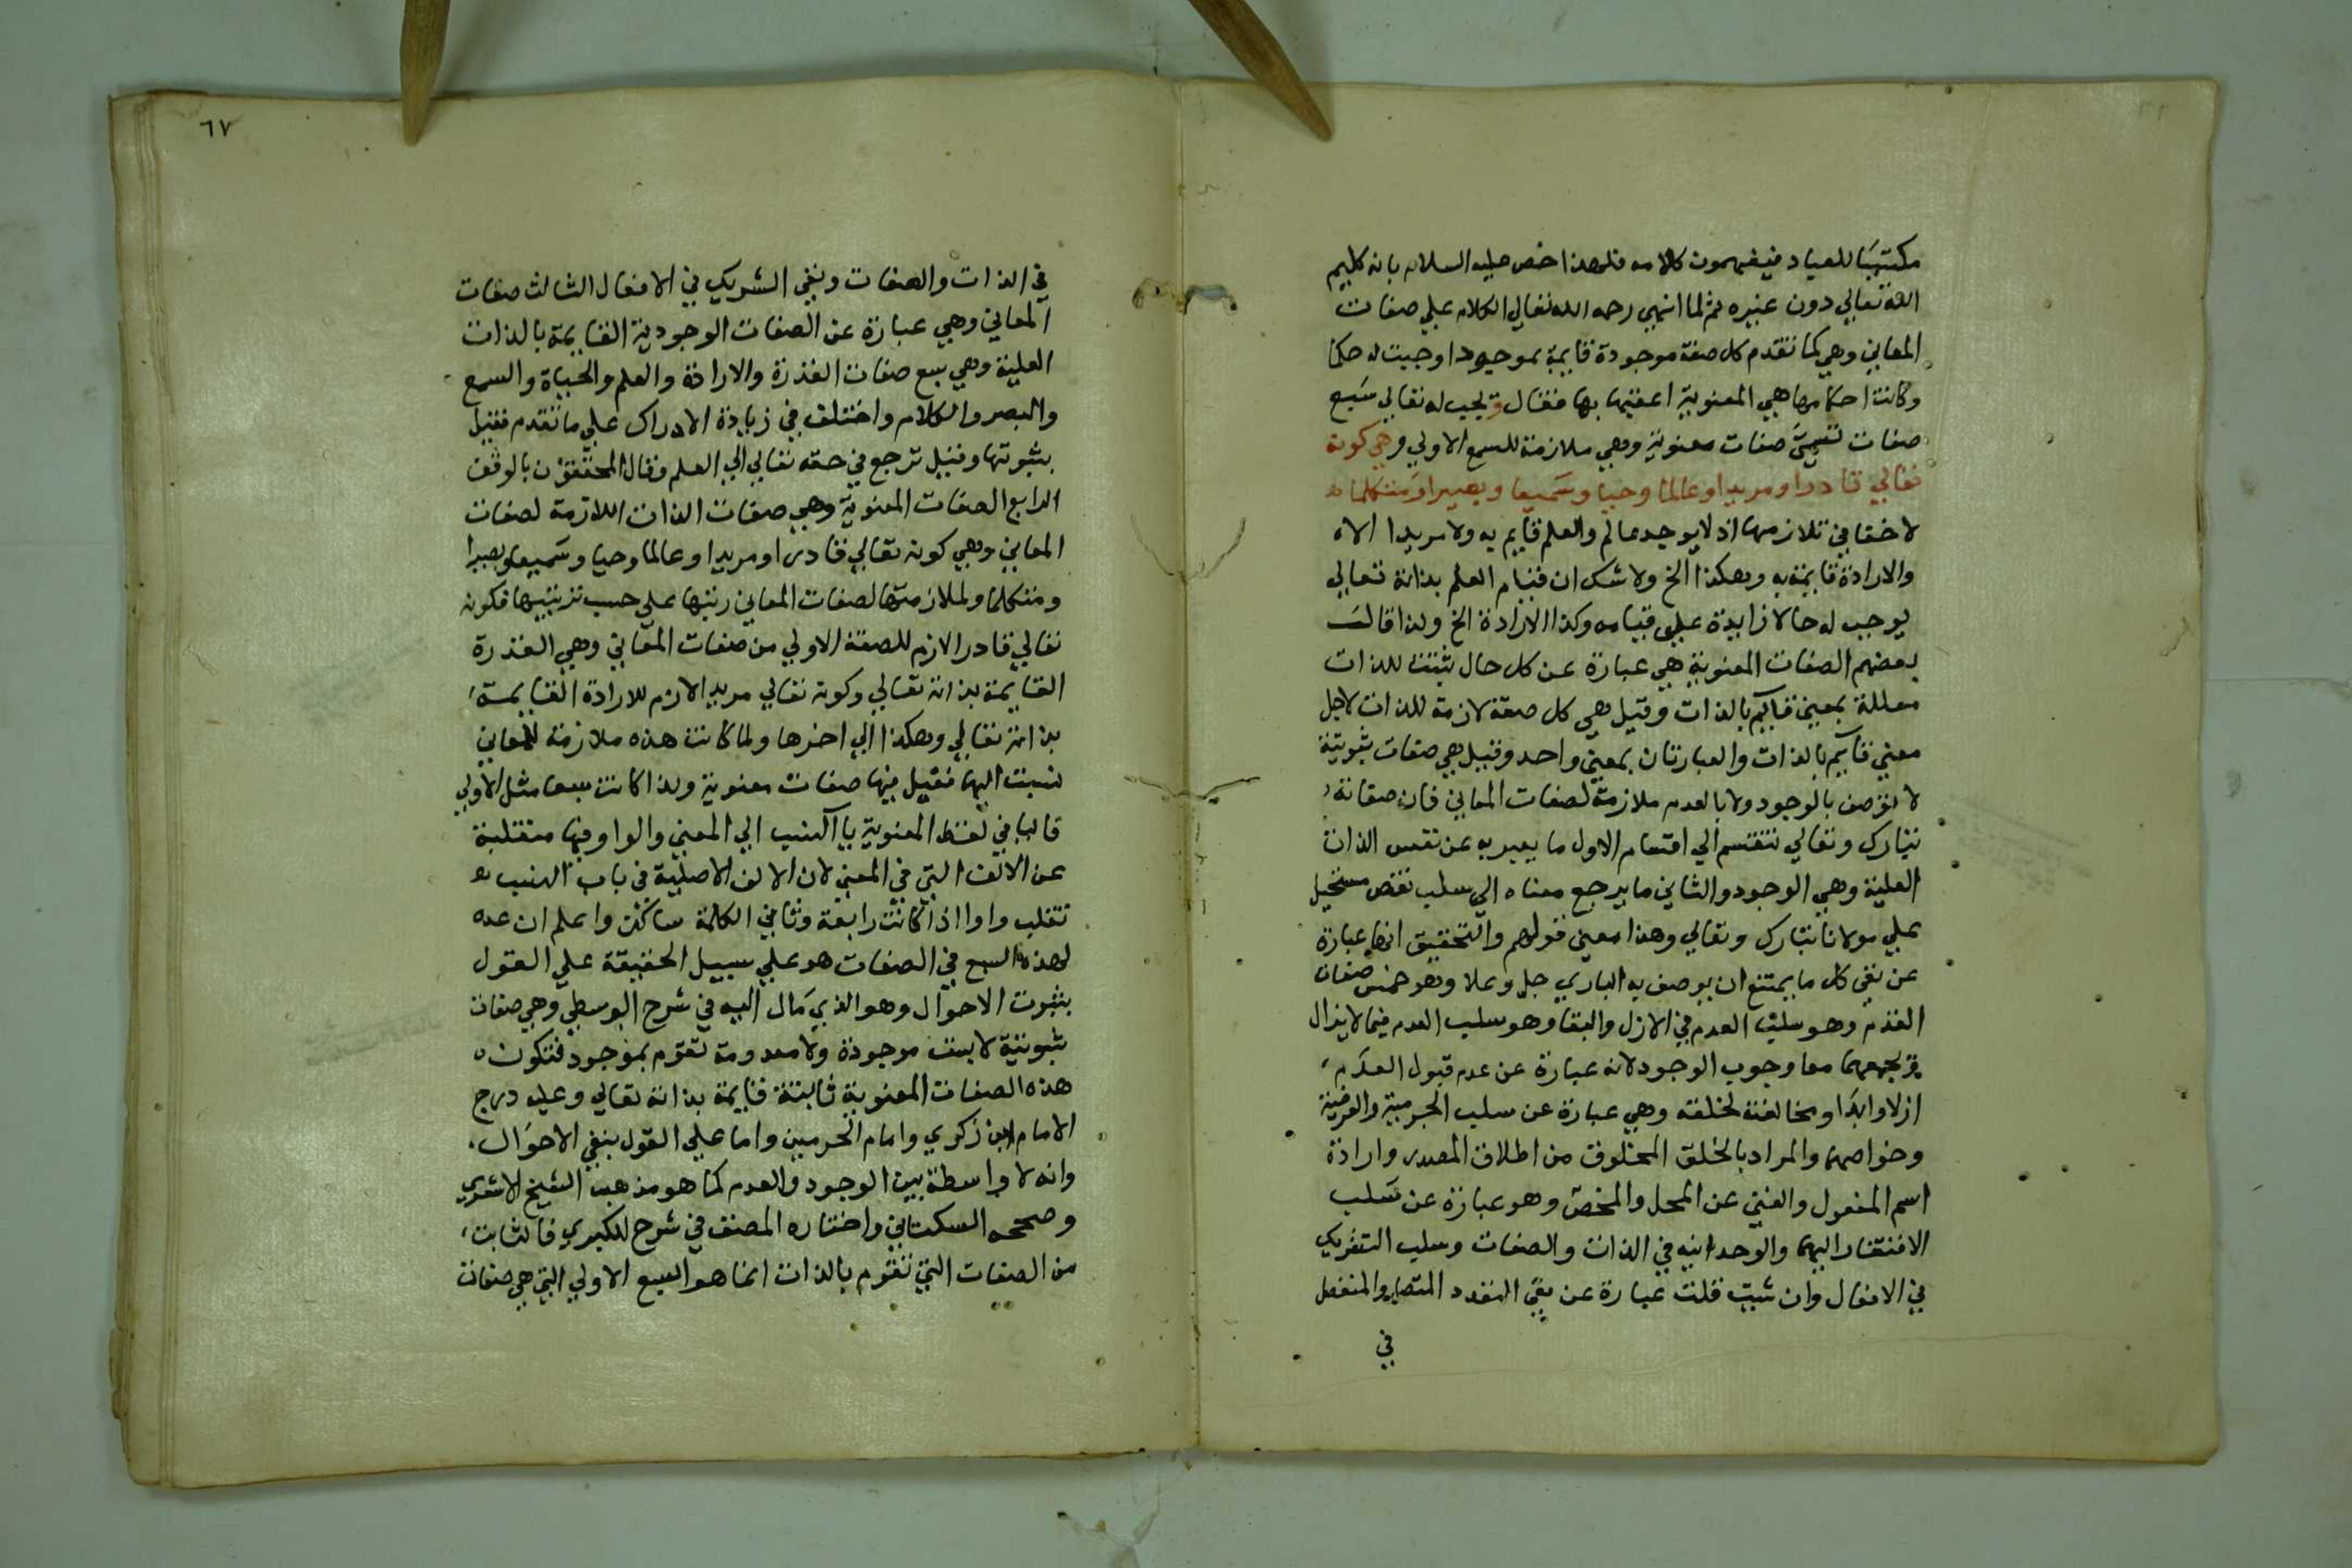 مكتسبا للعباد فيفهمون كلامه فلهذا اختص عليه السلام بانه كليم
الله تعالي دون غيره ثم لما انهي رحمه الله تعالي الكلام علي صفات
المعاني وهي كما تقدم كل صفة موجودة قايمة بموجود اوجبت له حكما
وكانت احكامها هي المعنوية اعقبها بها فقال ويجب له تعالي سبع
صفات تسمي صفات معنوية وهي ملازمة للسبع الاولي وهي كونه
تعالي قادرا ومريدا وعالما وحيا وسميعا وبصيرا ومتكلما
لا خفا في تلازمها اذ لا يوجد عالم والعلم قايم به ولا مريدا الا
والارادة قايمة به وهكذا الخ ولا شك ان قيام العلم بذاته تعالي
يوجب له حالا زايدة علي قيامه وكذا الارادة الخ ولذا قال
بعضهم الصفات المعنوية هي عبارة عن كل حال ثبتت للذات
معللة بمعني قايم بالذات وقيل هي كل صفة لازمة للذات لاجل
معني قايم بالذات والعبارتان بمعني واحد وقيل هي صفات ثبوتية
لا توصف بالوجود ولا بالعدم ملازمة لصفات المعاني فان صفاته
تبارك وتعالي تنقسم الي اقسام الاول ما يعبر به عن نفس الذات
العلية وهي الوجود والثاني ما يرجع معناه الي سلب نقص مستحيل
علي مولانا تبارك وتعالي وهذا معني قولهم والتحقيق انها عبارة
عن نفي كل ما يمتنع ان يوصف به الباري جل وعلا وهو خمس صفات
القدم وهو سلب العدم في الازل والبقا وهو سلب العدم فيما لا يزال
ويجمعهما معا وجوب الوجود لانه عبارة عن عدم قبول العدم
ازلا وابدا ومخالفته لخلقه وهي عبارة عن سلب الجرمية والعرضية
وخواصهما والمراد بالخلق المخلوق من اطلاق المصدر وارادة
اسم المفعول والغني عن المحل والمخصص وهو عبارة عن سلب
الافتقار اليهما والوحدانيه في الذات والصفات وسلب الشريك
في الافعال وان شيت قلت عبارة عن نفي التعدد المتصل والمنفصل
في
٦٧
في الذات والصفات ونفي الشريك في الافعال الثالث صفات
المعاني وهي عبارة عن الصفات الوجودية القايمة بالذات
العلية وهي سبع صفات القدرة والارادة والعلم والحياة والسمع
والبصر والكلام واختلف في زيادة الادراك علي ما تقدم فقيل
بثبوتها وقيل ترجع في حقه تعالي الي العلم وقال المحققون بالوقف
الرابع الصفات المعنوية وهي صفات الذات اللازمة لصفات
المعاني وهي كونه تعالي قادرا ومريدا وعالما وحيا وسميعا وبصيرا
ومتكلما ولملازمتها لصفات المعاني رتبها علي حسب ترتيبها فكونه
تعالي قادرا لازم للصفة الاولي من صفات المعاني وهي القدرة
القايمة بذاته تعالي وكونه تعالي مريدا لازم للارادة القايمة
بذاته تعالي وهكذا الي اخرها ولما كانت هذه ملازمة للمعاني
نسبت اليها فقيل فيها صفات معنوية ولذا كانت سبعا مثل الاولي
فاليا في لفظ المعنوية يا النسب الي المعني والواو فيها منقلبة
عن الالف التي في المعني لان الالف الاصلية في باب النسب
تقلب واوا اذا كانت رابعة وثاني الكلمة ساكن واعلم ان عده
لهذه السبع في الصفات هو علي سبيل الحقيقة علي القول
بثبوت الاحوال وهو الذي مال اليه في شرح الوسطي وهي صفات
ثبوتية لا ليست موجودة ولا معدومة تقوم بموجود فتكون
هذه الصفات المعنوية ثابتة قايمة بذاته تعالي وعليه درج
الامام ابن زكري وامام الحرمين واما علي القول بنفي الاحوال
وانه لا واسطة بين الوجود والعدم كما هو مذهب الشيخ الاشعري
وصححه السكتاني واختاره المصنف في شرح الكبري فالثابت
من الصفات التي تقوم بالذات انما هو السبع الاولي التي هي صفات